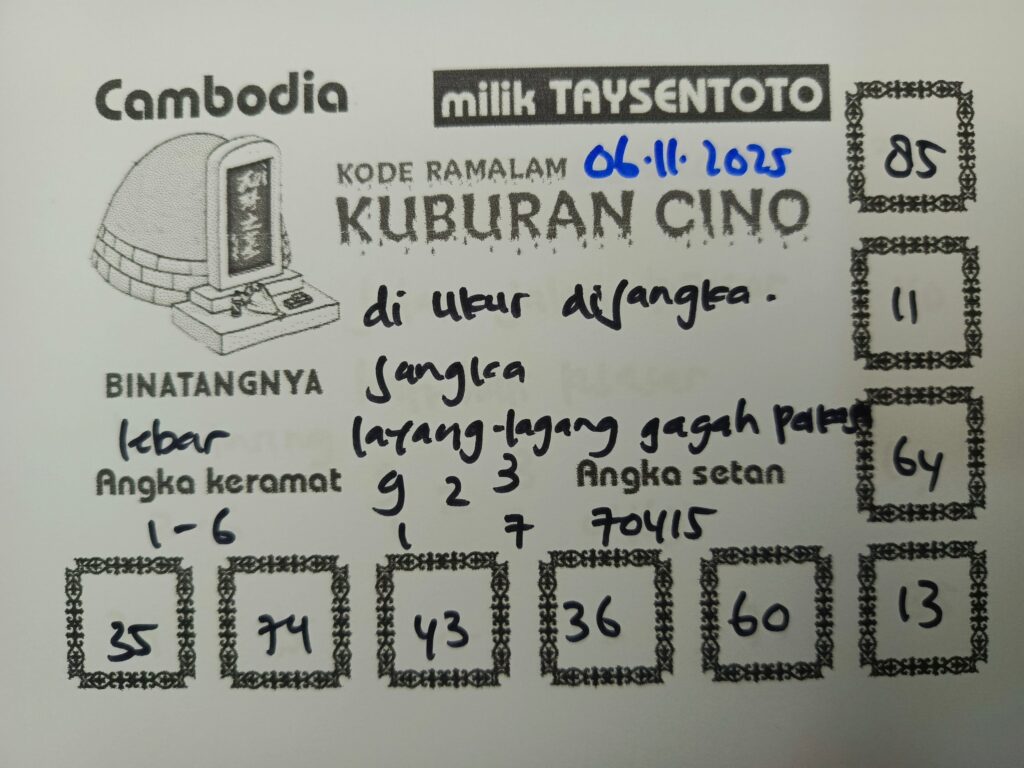 Cambodia
milik TAYSENTOTO
KODE RAMALAM 06.11.2025
KUBURAN CINO
di ukur disangka.
sangka
BINATANGNYA
lebar
layang-lagang gagah
Angka keramat
1-6
9 2 3
1 7
Angka setan
70415
85
11
64
13
35
74
43
36
60